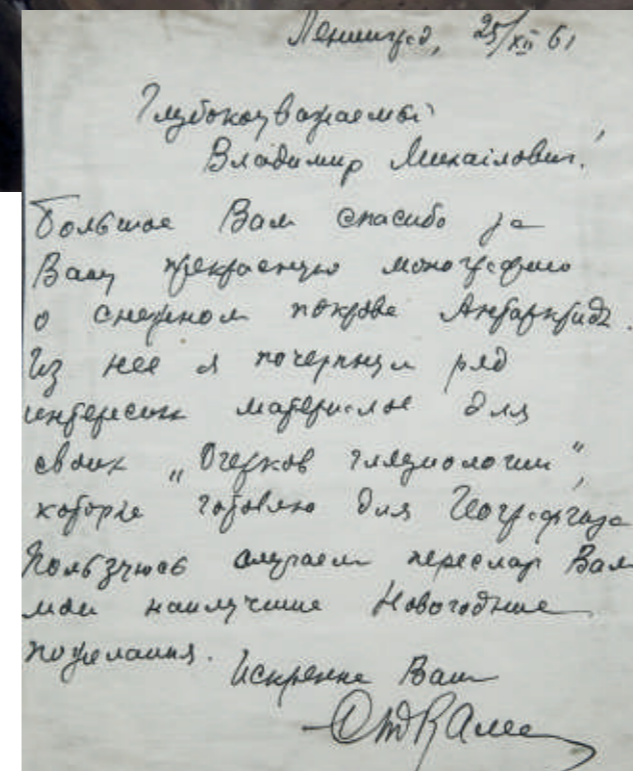 Ленинград, 25/XII 61
Глубокоуважаемый
Владимир Михайлович!
Большое Вам спасибо за
Вашу прекрасную монографию
о снежном покрове Антарктиды.
Из нее я почерпнул ряд
интересных материалов для
своих „Очерков гляциологии",
которые готовлю для Географгиза
Пользуюсь случаем переслать Вам
мои наилучшие Новогодние
пожелания.
Искренне Ваш